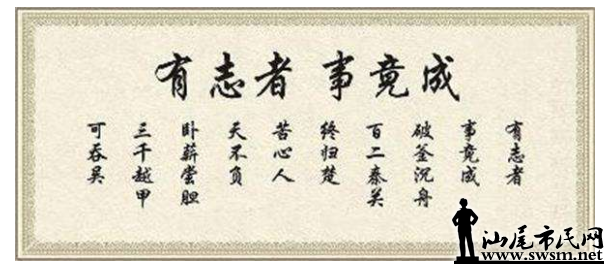 有志者 事竟成
有志者
事竟成
破釜沉舟
百二秦关
终归楚
苦心人
天不负
卧薪尝胆
三千越甲
可吞吴
汕尾市民网
www.swsm.net